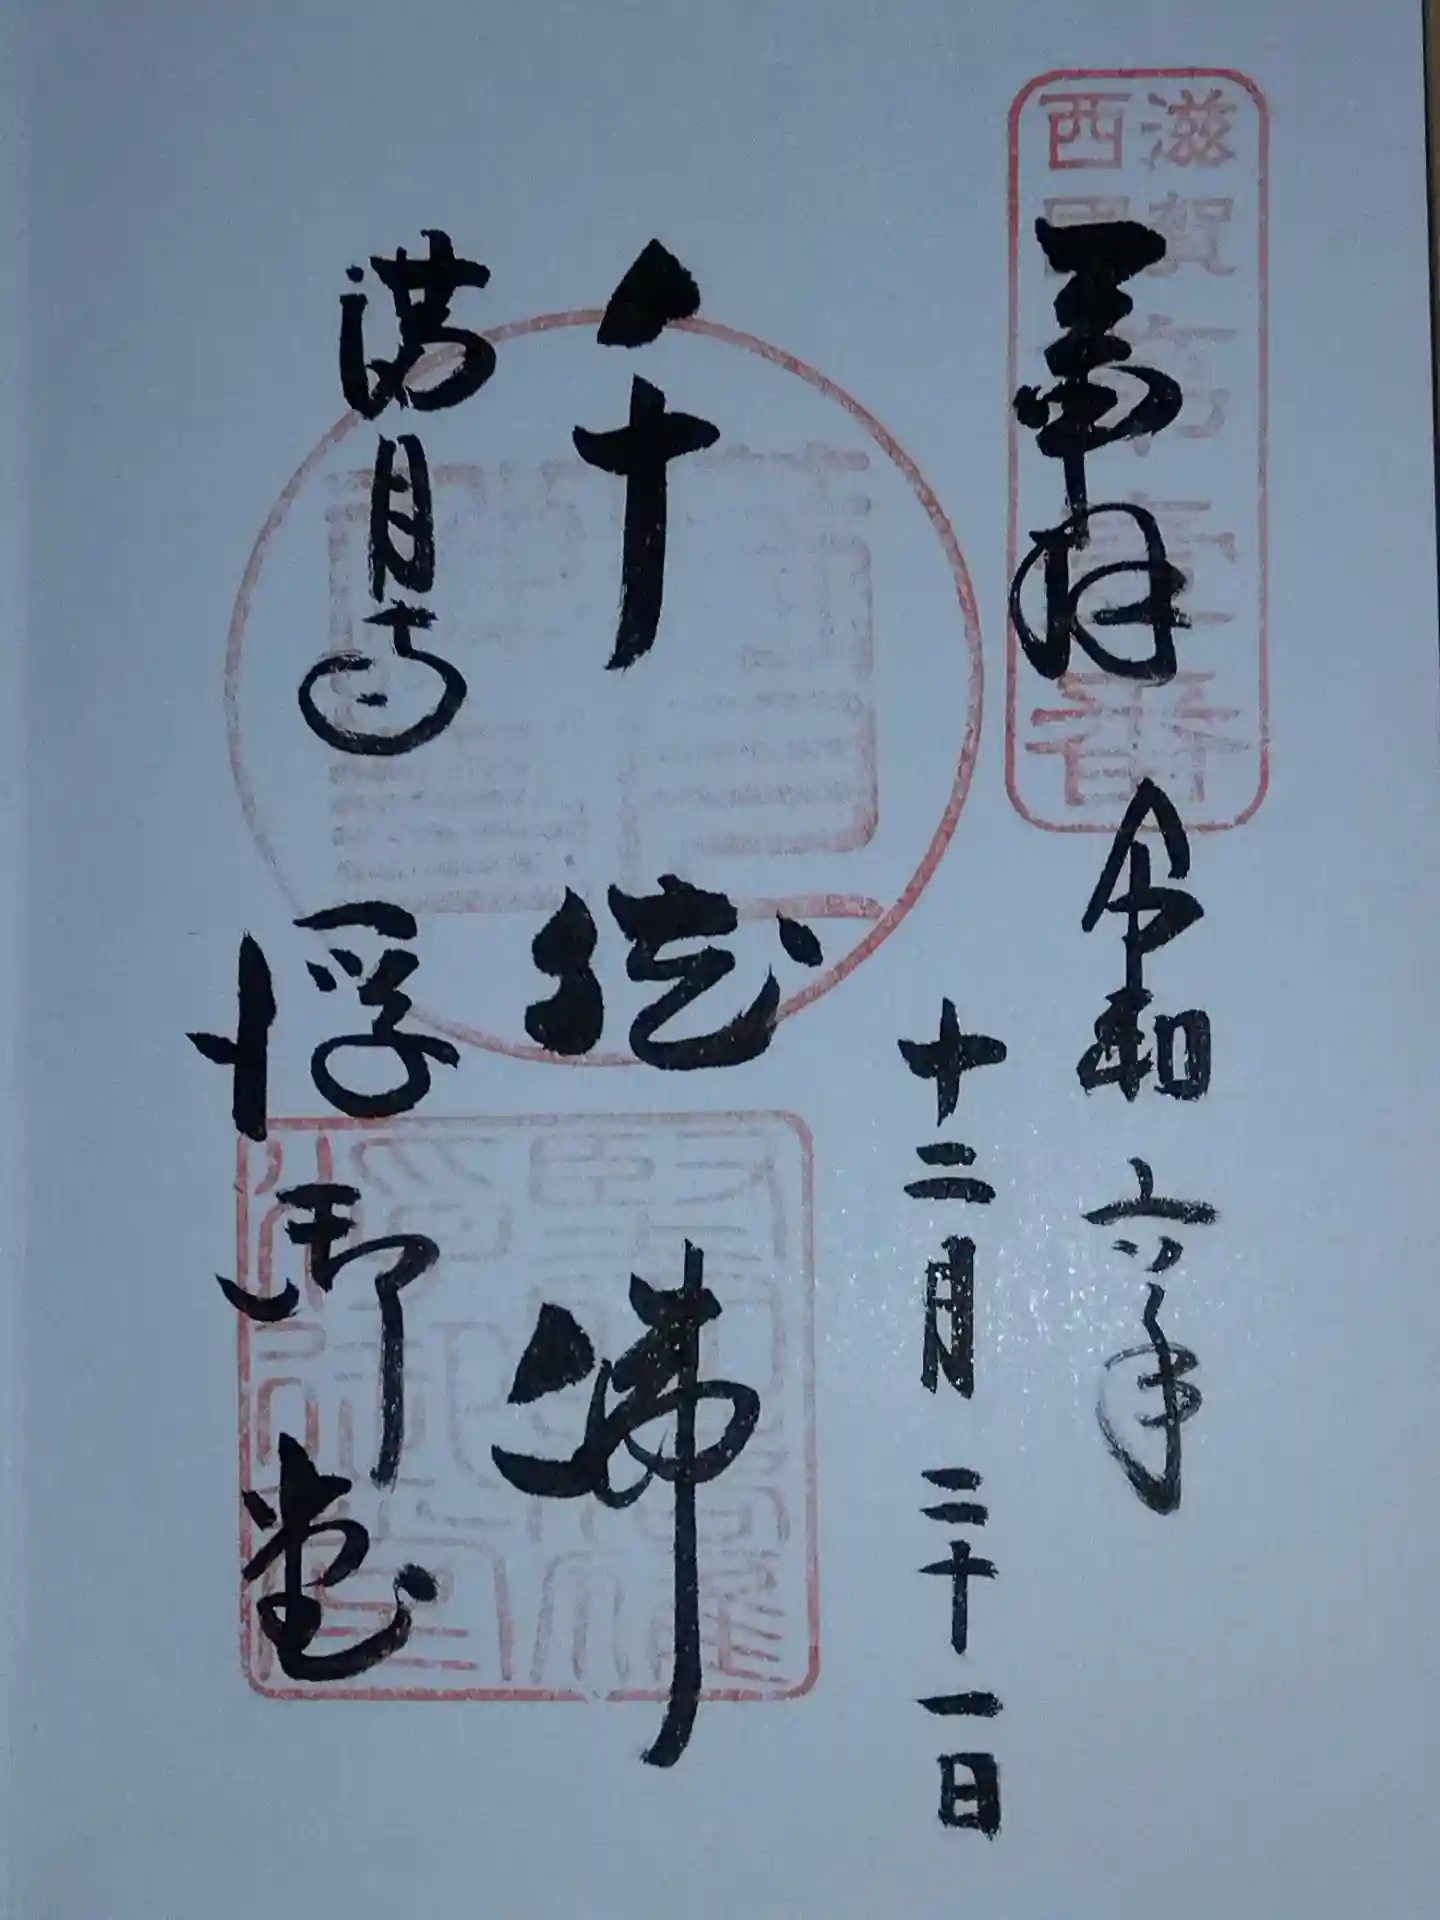 滋賀
西國
番
奉拝
令和六年
十二月二十一日
千体佛
満月寺
浮御堂